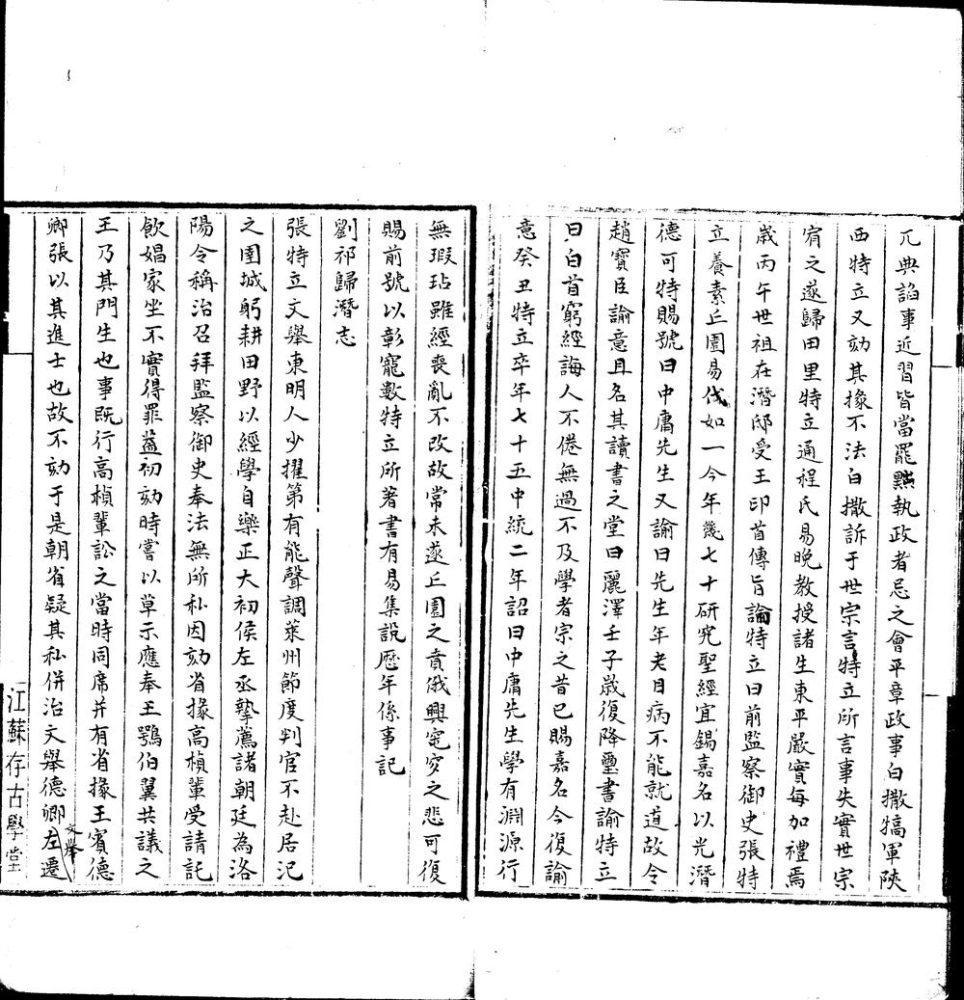 兀典諂事近習皆當罷黜執政者忌之會平章政事白撒犒軍陝
西特立又劾其掾不法白撒訴于世宗言特立所言事失實世宗
宥之遂歸田里特立通程氏易晚教授諸生東平嚴實每加禮焉
歲丙午世祖在潛邸受王印首傳旨諭特立曰前監察御史張特
立養素丘園易代如一今年幾七十研究聖經宜錫嘉名以光潛
德可特賜號曰中庸先生又諭曰先生年老目病不能就道故令
趙寶臣諭意且名其讀書之堂曰麗澤壬子歲復降璽書諭特立
曰白首窮經誨人不倦無過不及學者宗之昔已賜嘉名今復諭
意癸丑特立卒年七十五中統二年詔曰中庸先生學有淵源行
無瑕玷雖經喪亂不改故常未遂丘園之賁俄興窀穸之悲可復
賜前號以彰寵數特立所著書有易集說歷年係事記
劉祁歸潛志
張特立文舉東明人少擢第有能聲調萊州節度判官不赴居汜
之圉城躬耕田野以經學自樂正大初侯左丞摯薦諸朝廷為洛
陽令稱治召拜監察御史奉法無所私因劾省掾高楨輩受請託
飲娼家坐不實得罪蓋初劾時嘗以草示應奉王鶚伯翼共議之
王乃其門生也事既行高楨輩訟之當時同席并有省掾王賓德
卿張以其進士也故不劾于是朝省疑其私併治文舉德卿左遷
文舉
江蘇存古學堂